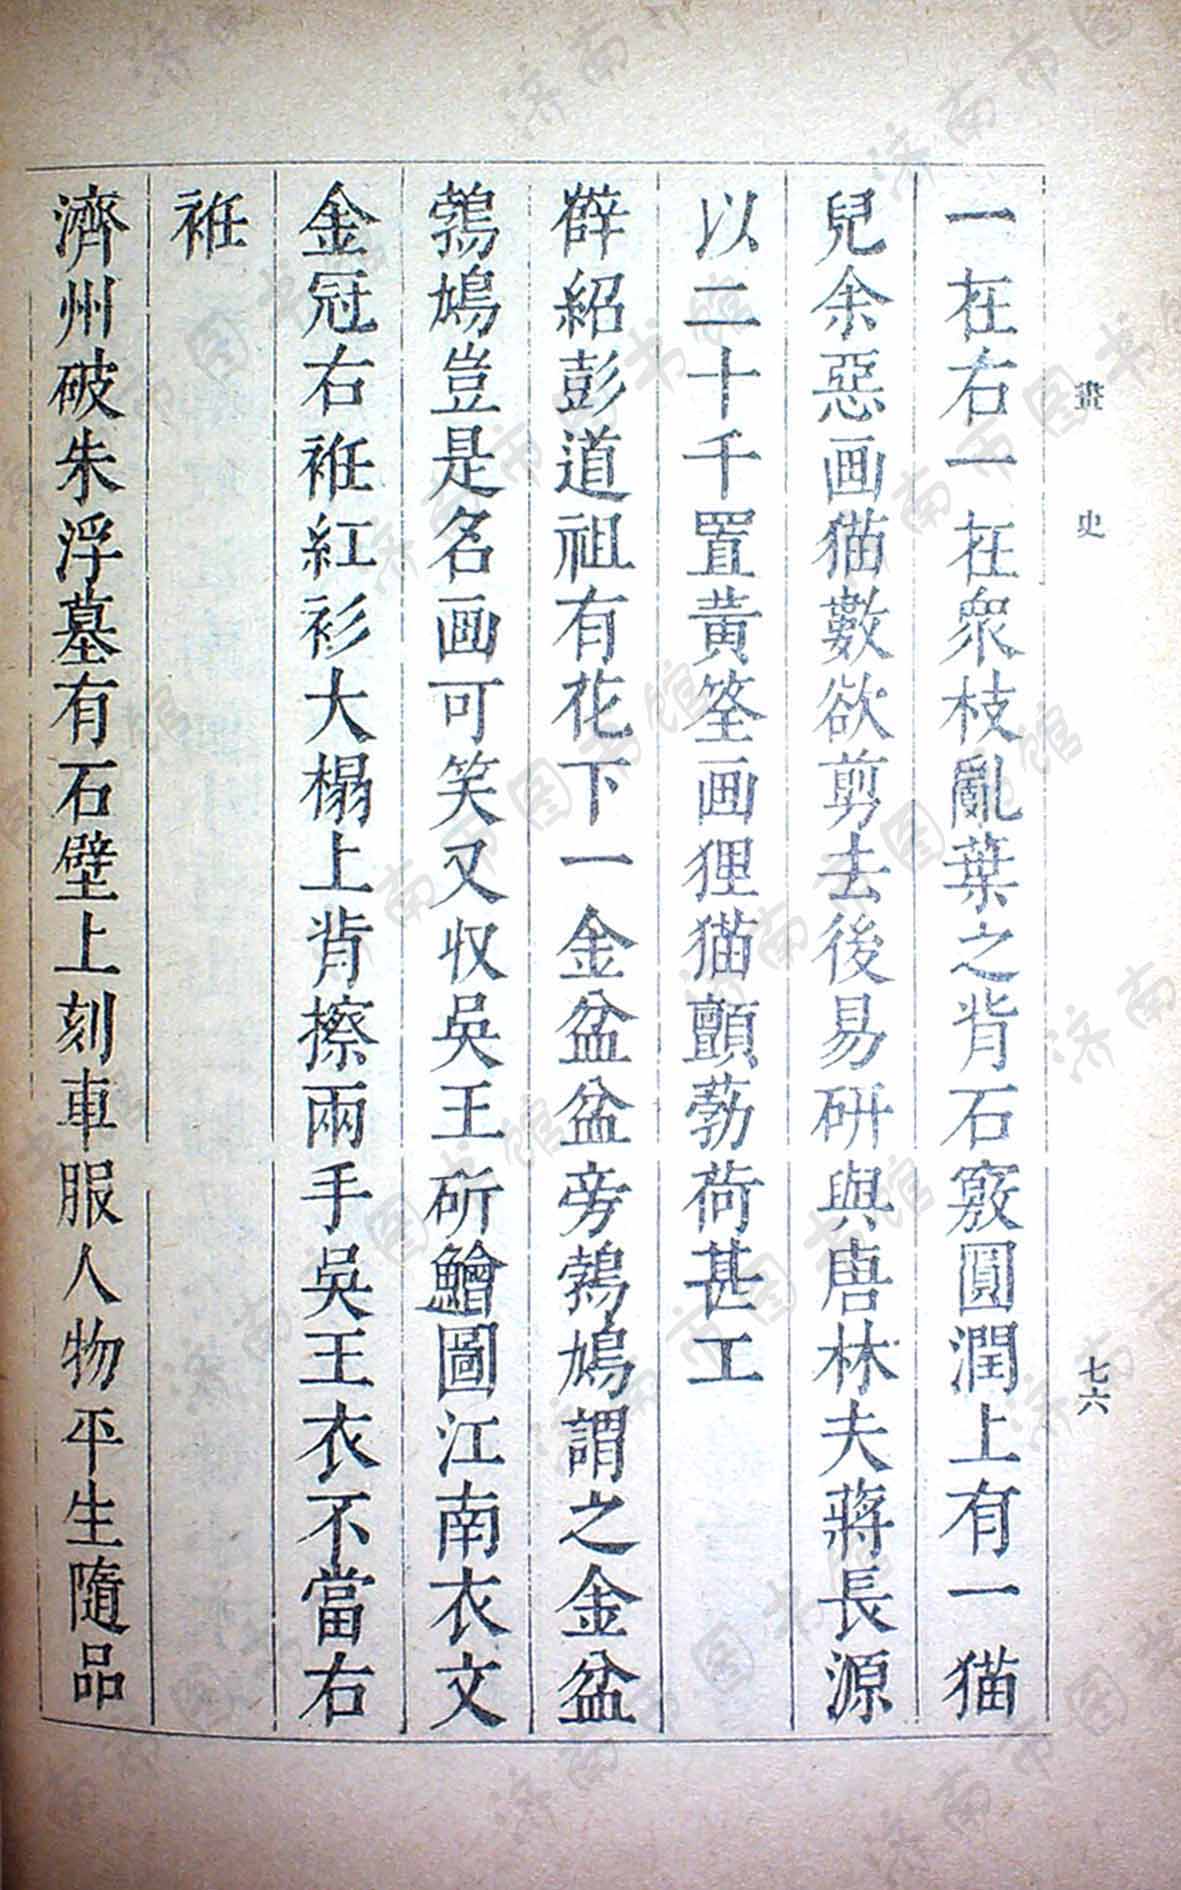 畫史
七六
一在右一在衆枝亂葉之背石竅圓潤上有一猫
兒余惡画猫數欲剪去後易研與唐林夫蔣長源
以二十千置黃筌画狸猫顫葧荷甚工
薛紹彭道祖有花下一金盆盆旁鵓鳩謂之金盆
鵓鳩豈是名画可笑又收吳王斫鱠圖江南衣文
金冠右袵紅衫大榻上背擦兩手吳王衣不當右
袵
濟州破朱浮墓有石壁上刻車服人物平生隨品
济南市图书馆